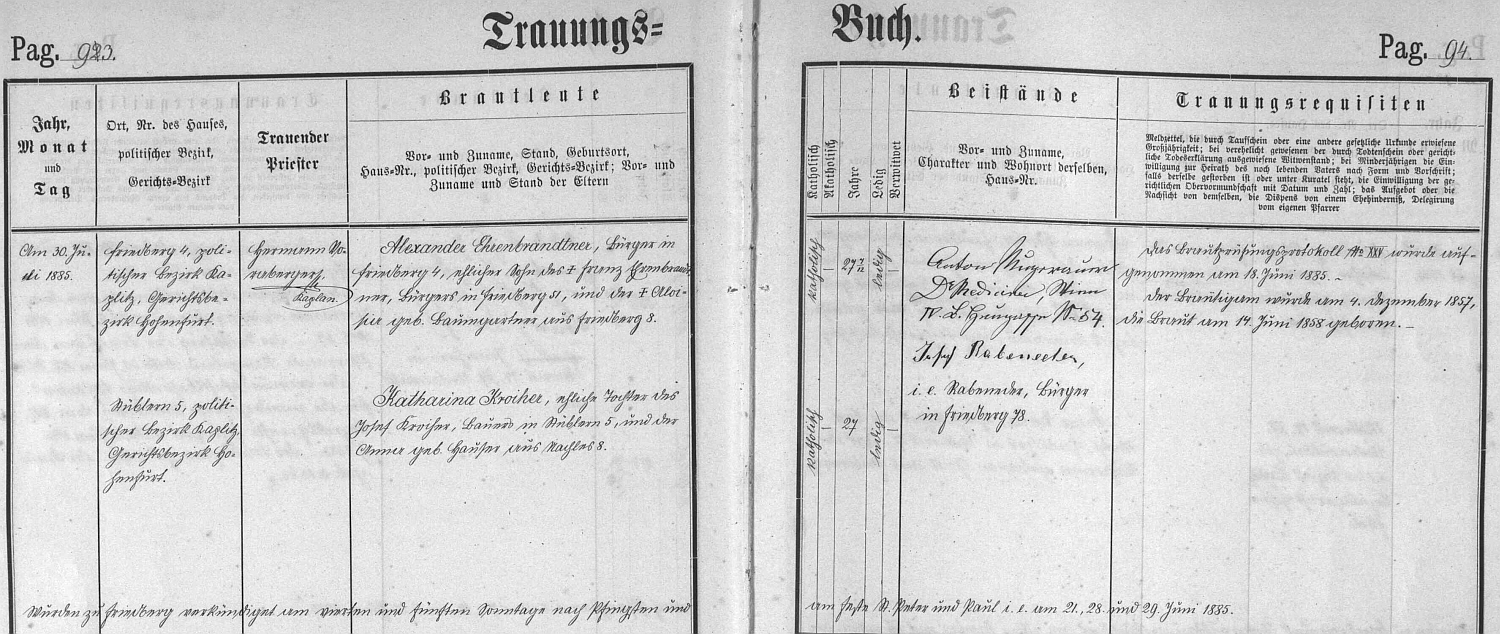 Trauungs=
Buch.
Pag. 93.
Pag. 94.
Jahr,
Monat
und
Tag
Ort, Nr. des Hauses,
politischer Bezirk,
Gerichts=Bezirk
Trauender
Priester
Brautleute
Vor= und Zuname, Stand, Geburtsort,
Haus=Nr., politischer Bezirk, Gerichts=Bezirk; Vor= und
Zuname und Stand der Eltern
Katholisch
Akatholisch
Jahre
Ledig
Verwitwet
Beistände
Vor= und Zuname,
Charakter und Wohnort derselben,
Haus=Nr.
Trauungsrequisiten
Meldzettel, die durch Taufschein oder eine andere gesetzliche Urkunde erwiesene
Großjährigkeit; bei verehelicht gewesenen der durch Todtenschein oder gericht-
liche Todeserklärung ausgewiesene Witwenstand; bei Minderjährigen die Ein-
willigung zur Heirath des noch lebenden Vaters nach Form und Vorschrift;
falls derselbe gestorben ist oder unter Kuratel steht, die Einwilligung der ge-
richtlichen Obervormundschaft mit Datum und Zahl; das Aufgebot oder die
Nachsicht von demselben, die Dispens von einem Ehehinderniß, Delegirung
vom eigenen Pfarrer
Am 30. Ju-
ni 1885.
Friedberg 4, poli-
tischer Bezirk Ka-
plitz, Gerichtsbe-
zirk Hohenfurt.
Hermann Vo-
rabergerm/p
Kaplan.
Alexander Ehrenbrandtner, Bürger in
Friedberg 4, ehlicher Sohn des † Franz Ehrenbrandt-
ner, Bürgers in Friedberg 51, und der † Aloi-
sia geb. Baumgartner aus Friedberg 8.
katholisch
27 7/12
ledig
Anton Mugerauer
Dr Medicinae, Wien
IV. B. Heugasse No 54.
Josef Rabeneder,
i. e. Rabeneder, Bürger
in Friedberg 78.
Das Brautprüfungsprotokoll No XXV wurde auf-
genommen am 18. Juni 1885. –
Der Bräutigam wurde am 4. Dezember 1857,
die Braut am 14. Juni 1858 geboren. –
Stüblern 5, politi-
scher Bezirk Kaplitz,
Gerichtsbezirk Ho-
henfurt.
Katharina Kroiher, ehliche Tochter des
Josef Kroiher, Bauers in Stüblern 5, und der
Anna geb. Hauser aus Nachles 8.
katholisch
27
ledig
Wurden zu Friedberg verkündiget am vierten und fünften Sonntage nach Pfingsten und
am Feste St. Peter und Paul i. e. am 21., 28. und 29. Juni 1885.